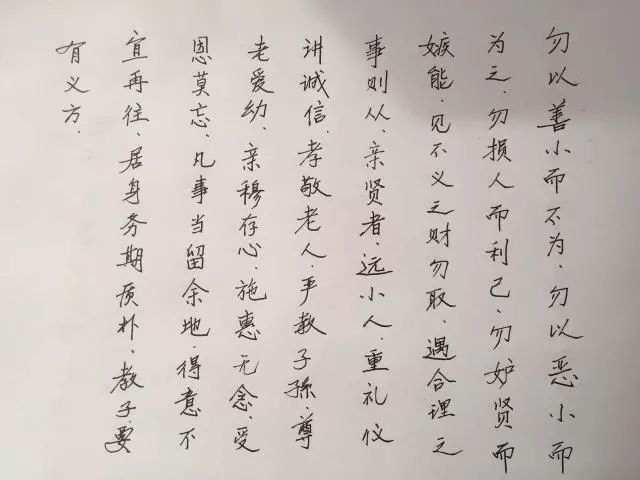 勿以善小而不为、勿以恶小而
为之、勿损人而利己、勿妒贤而
嫉能、见不义之财勿取、遇合理之
事则从、亲贤者、远小人、重礼仪
讲诚信、孝敬老人、严教子孙、尊
老爱幼、亲穆存心、施惠无念、受
恩莫忘、凡事当留余地、得意不
宜再往、居身务期质朴、教子要
有义方.